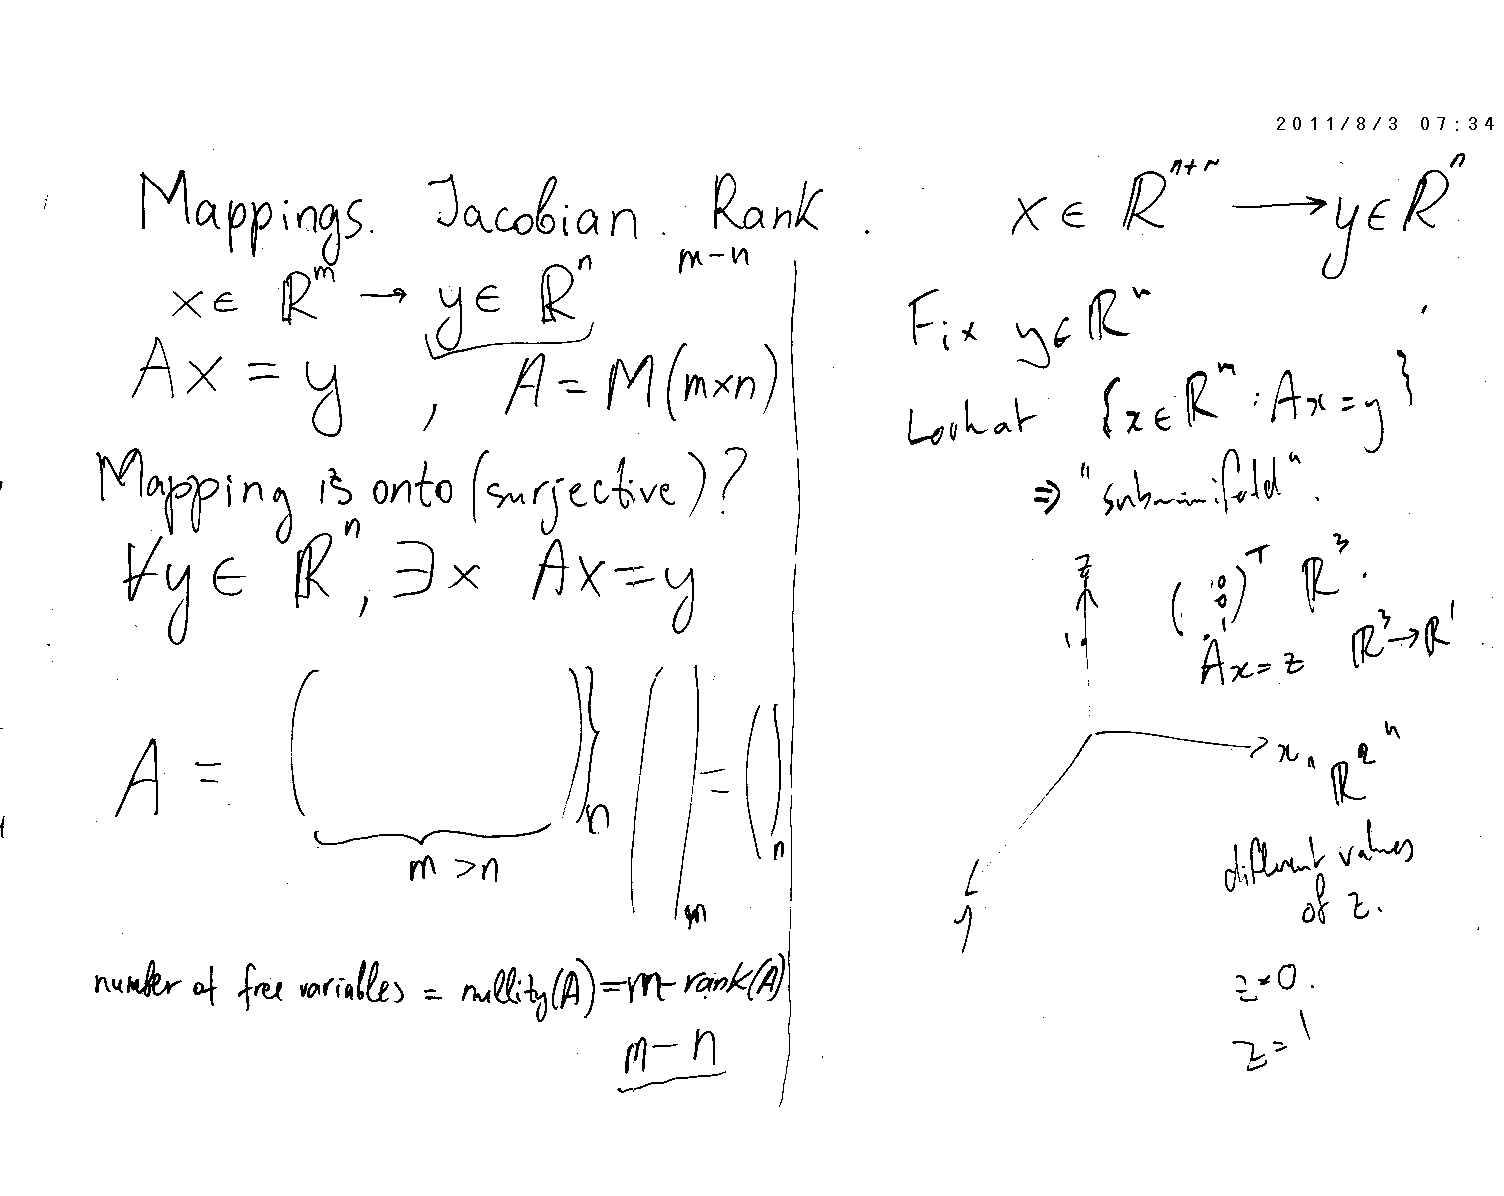 2011/8/3 07:34
Mappings. Jacobian. Rank.
m-n
x ∈ ℝ^m → y ∈ ℝ^n
Ax = y , A = M(m×n)
Mapping is onto (surjective)?
∀y ∈ ℝ^n, ∃x Ax=y
A = ( )}n ( )m = ( )n
m > n
number of free variables = nullity(A) = m-rank(A)
m-n
x ∈ ℝ^{n+r} → y ∈ ℝ^n
Fix y ∈ ℝ^n
Look at {x ∈ ℝ^m : Ax = y}
⇒ "submanifold".
z
(0 0 1)^T ℝ^3.
1
Ax = z ℝ^3 → ℝ^1
x
y
"ℝ^2"
different values
of z.
z=0.
z=1